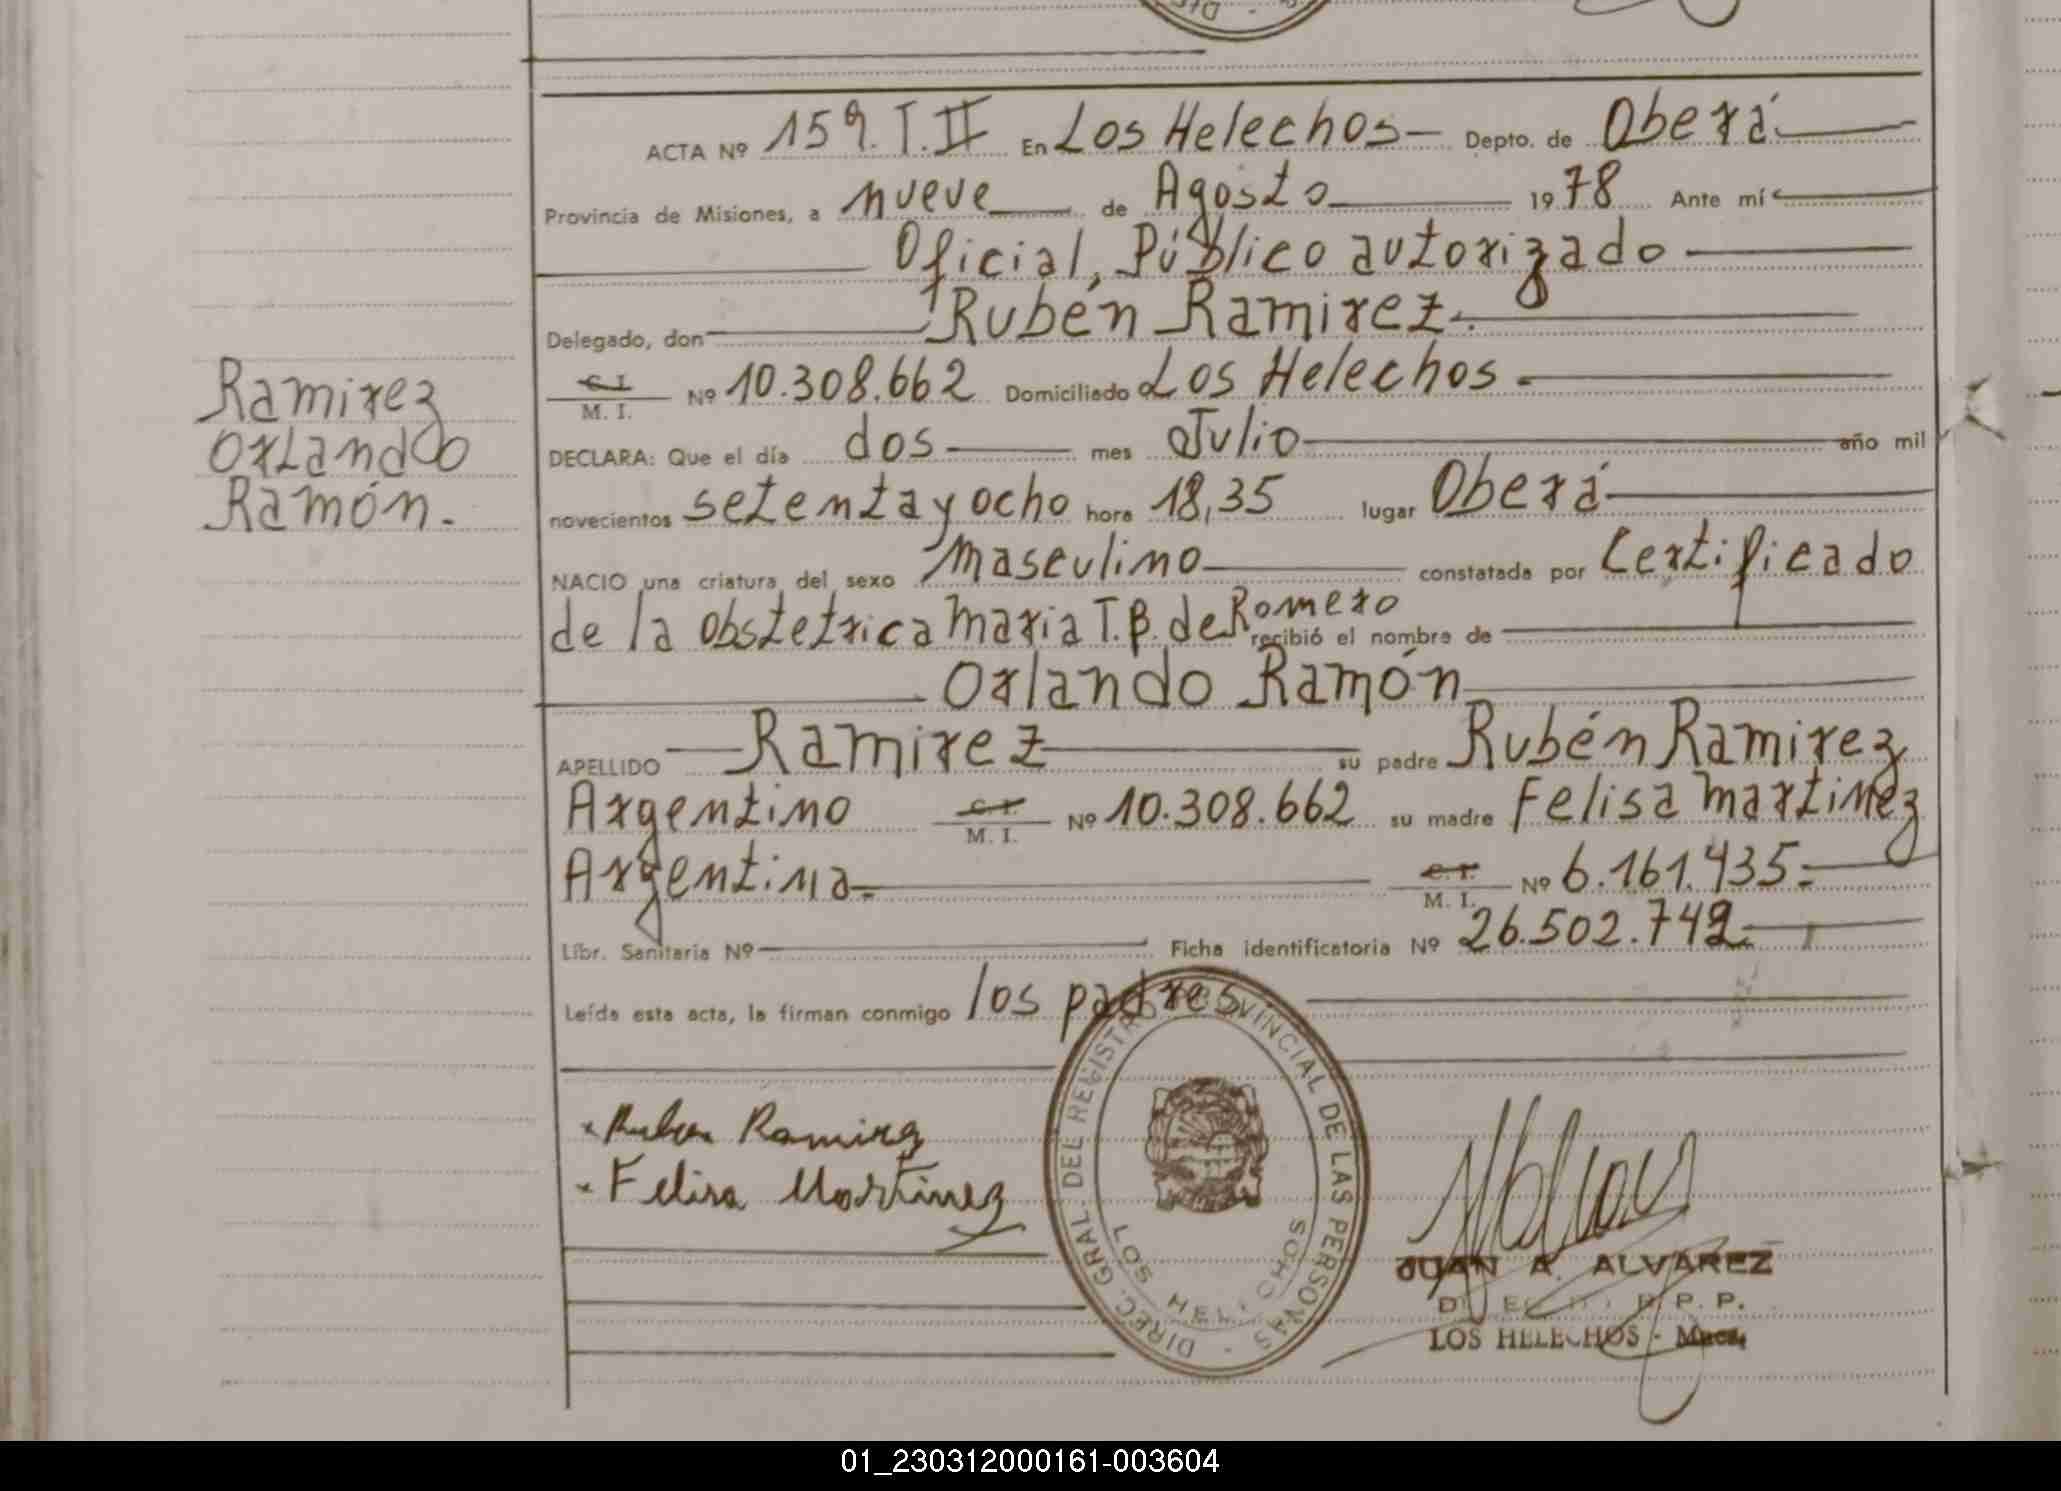 ACTA Nº 159. T. II En Los Helechos Depto. de Oberá
Provincia de Misiones, a nueve de Agosto 1978 Ante mí
Oficial, Público autorizado
Delegado, don Rubén Ramirez.
C. I.
M. I. Nº 10.308.662 Domiciliado Los Helechos.
DECLARA: Que el día dos mes Julio año mil
novecientos setenta y ocho hora 18,35 lugar Oberá
NACIO una criatura del sexo Masculino constatada por Certificado
de la obstetrica Maria T. B. de Romero recibió el nombre de
Orlando Ramón
APELLIDO Ramirez su padre Rubén Ramirez
Argentino C. I. M. I. Nº 10.308.662 su madre Felisa Martinez
Argentina. C. I. M. I. Nº 6.161.435.
Libr. Sanitaria Nº Ficha identificatoria Nº 26.502.742
Leída esta acta, la firman conmigo los padres
Ramirez
Orlando
Ramón.
x Ruben Ramirez
x Felisa Martinez
DIREC. GRAL. DEL REGISTRO PROVINCIAL DE LAS PERSONAS
LOS HELECHOS
JUAN A. ALVAREZ
R. P. P.
LOS HELECHOS - Mnes.
01_230312000161-003604